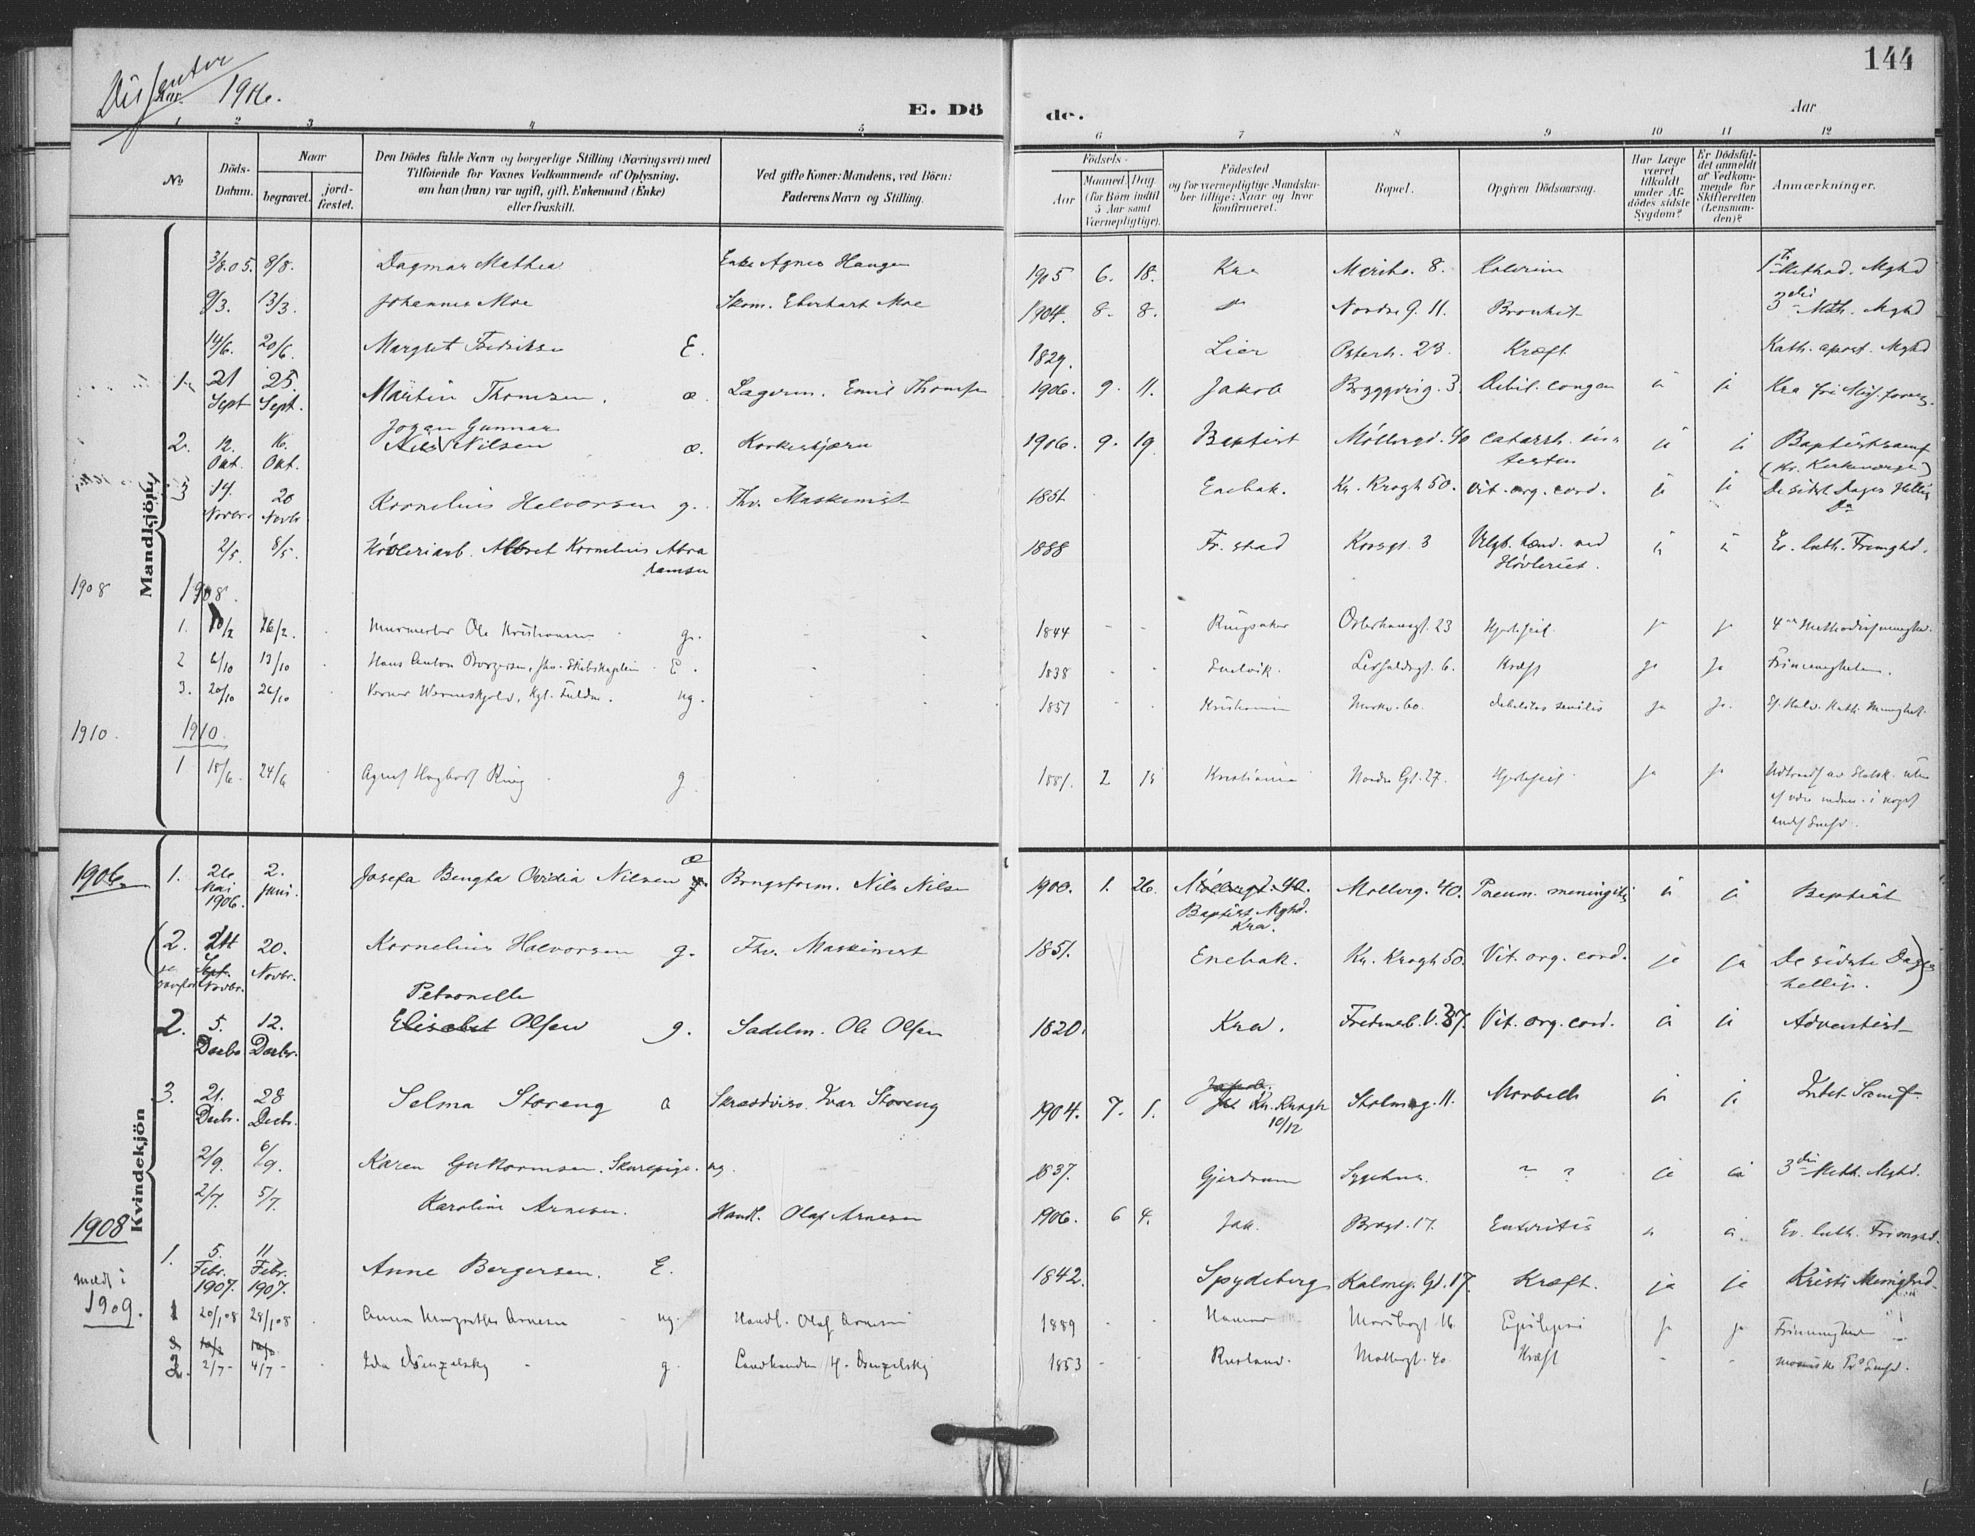 144
Dissenter
Aar 1906.
E. Döde.
Aar
1 2 3 4 5 6 7 8 9 10 11 12
No
Döds-Datum.
Naar
begravet.
jordfæstet.
Den Dödes fulde Navn og borgerlige Stilling (Næringsvei) med
Tilföiende for Voxnes Vedkommende af Oplysning,
om han (hun) var ugift, gift, Enkemand (Enke)
eller fraskilt.
Ved gifte Koner: Mandens, ved Börn:
Faderens Navn og Stilling.
Födsels-
Aar
Maaned. Dag.
(for Börn indtil
5 Aar samt
Værnepligtige).
Födested
og for værnepligtige Mandskaber tillige: Naar og hvor
konfirmeret.
Bopæl.
Opgiven Dödsaarsag.
Har Læge
været
tilkaldt
under Afdödes sidste
Sygdom?
Er Dödsfaldet anmeldt
af Vedkommende for
Skifteretten
(Lensmanden)?
Anmærkninger.
Mandkjön
3/8.05. 8/8. Dagmar Mathea Enke Agnes Haugen 1905 6. 18. Kra Maribo. 8. 1ste Method. Mghd
9/3. 13/3. Johannes Moe Skom. Eberhart Moe 1904. 8. 8. Nordre G. 11. Bronkit 3die Meth. Mghd
14/6. 20/6. E. 1829. Lier Osterh. 23. Kræft Kath. apost. Mghd
1. 21 Sept 25. Sept. Martin Thomsen. æ. Lagerm. Emil Thomsen 1906. 9. 11. Jakob 3. Debil. congen ja ja Kra
Johan Gunnar
2. 12. Okt. 16. Okt. Nils Nilsen æ. 1906. 9. 19. Baptist Mollergd. 40 catarrh. intestin ja ja Baptistsamf
3 14. Novbr. 20 Novbr. Kornelius Halvorsen g. Fhv. Maskinist 1851 Enebak. Kr. Krogh 50. Vit. org. cord. ja ja De sidst Dages Hellige
2/5. 8/5. Høvleriarb. Albert Kornelius Abrahamsen 1888 Fr. stad Korsgt. 3 ved Høvleriet. ja ja Ev. luth. Frimghd.
1908 1908.
1. 10/2 26/2. Murmester Ole Kristiansen g. 1844 Ringsaker Osterhausgt. 23 Hjertefeil ja ja 4de Methodistmenighed.
2 6/10 13/10 Hans Anton Borgersen, fhv. Skibskaptein E. 1838 Svelvik. 6. Kræft ja ja Frimenigheten.
3. 20/10 26/10 Werner Werenskjold, Kgl. Fuldm. ug. 1851 Kristiania 60. debilitas senilis ja ja
1910. 1910.
1 18/6. 24/6 Hagbart Ring g. 1881. 2 18 Kristiania Nordre Gt. 27. Hjertefeil ja ja Udtraadt av Statsk. uten at være indm. i noget andet Samfd.
Kvindekjön
1906. 1. 26 Mai 1906. 2. Juni. Josefa Bengta Ovidia Nilsen æ Nils Nilsen 1900. 1. 26. Mollergt. 40. Baptist Mghd. Kra. Mollerg. 40. Pneum. meningitis ja ja Baptist
(2. 14 Sept. Novbr. 20. Novbr. Kornelius Halvorsen g. Fhv. Maskinist 1851. Enebak. Kr. Krogh 50. Vit. org. cord. ja ja De sidste Dages hellige.)
Petronelle
2. 5. Decbr. 12. Decbr. Elisabet Olsen g. Sadelm. Ole Olsen 1820. Kra. Fredensb. V. 37. Vit. org. cord. ja ja Adventist
3. 21. Decbr. 28 Decbr. Selma Storeng æ Ivar Storeng 1904. 7. 1. Kr. Krogh 10/12 Holmeng. 11. Morbilli ja ja Intet Samf.
2/9. 6/9. Karen Guttormsen. Skurepige. ug. 1837. Gjerdrum Sygehus ? ? ja ja 3die Meth. Mghd.
2/7. 5/7. Karoline Arnesen. Handl. Olaf Arnesen 1906. 6 4. Jak. 17. Enteritis ja ja. Ev. luth. Frimghd.
1908
1. 5. Febr. 1907. 11 Febr. 1907. Anne Bergersen. E. 1842. Spydeberg Kalmey. Gt. 17. Kræft. ja ja Kristi Menighed
meldt i 1909.
1 20/1 08 28/1 08 Anna Margrethe Arnesen ug. Handl. Olaf Arnesen 1889 Hamar Maribogt. 16 Epilepsi ja ja Frimenigheden
2. 2/7 4/7 Ida g. 1853 Rusland. Mollergt. 40 Kræft mosaiske Tros Samfd.